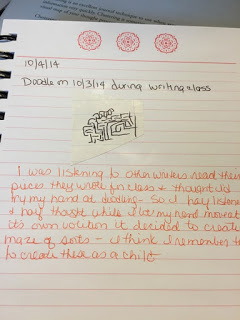 10/4/14
Doodle on 10/3/14 during writing class
I was listening to other writers read their
pieces they wrote in class & thought I'd
try my hand at doodling - so I half listened
& half thought while I let my hand move at
it's own volition it decided to create
maze of sorts - I think I remember
to create these as a child